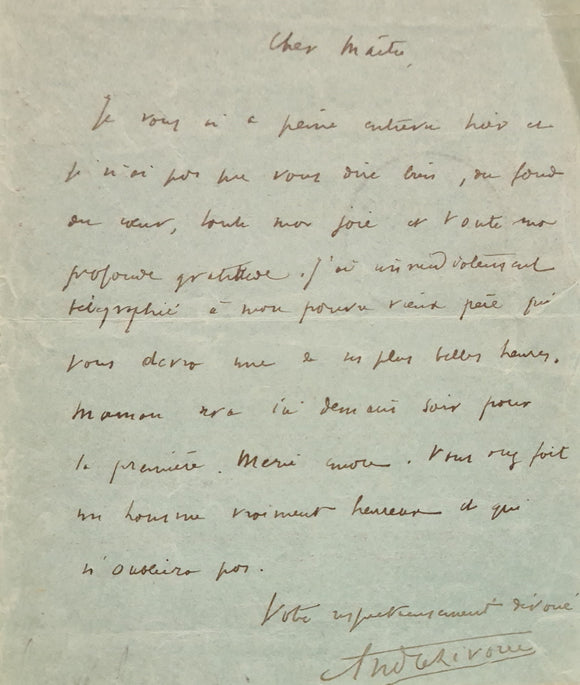 Cher Maître,
Je vous ai à peine entrevu hier et
je n'ai pas pu vous dire bien, du fond
du cœur, toute ma joie et toute ma
profonde gratitude. J'ai immédiatement
télégraphié à mon pauvre vieux père qui
vous devra une de ses plus belles heures.
Maman sera ici demain soir pour
la première. Merci encore. Vous avez fait
un homme vraiment heureux et qui
n'oubliera pas.
Votre respectueusement dévoué